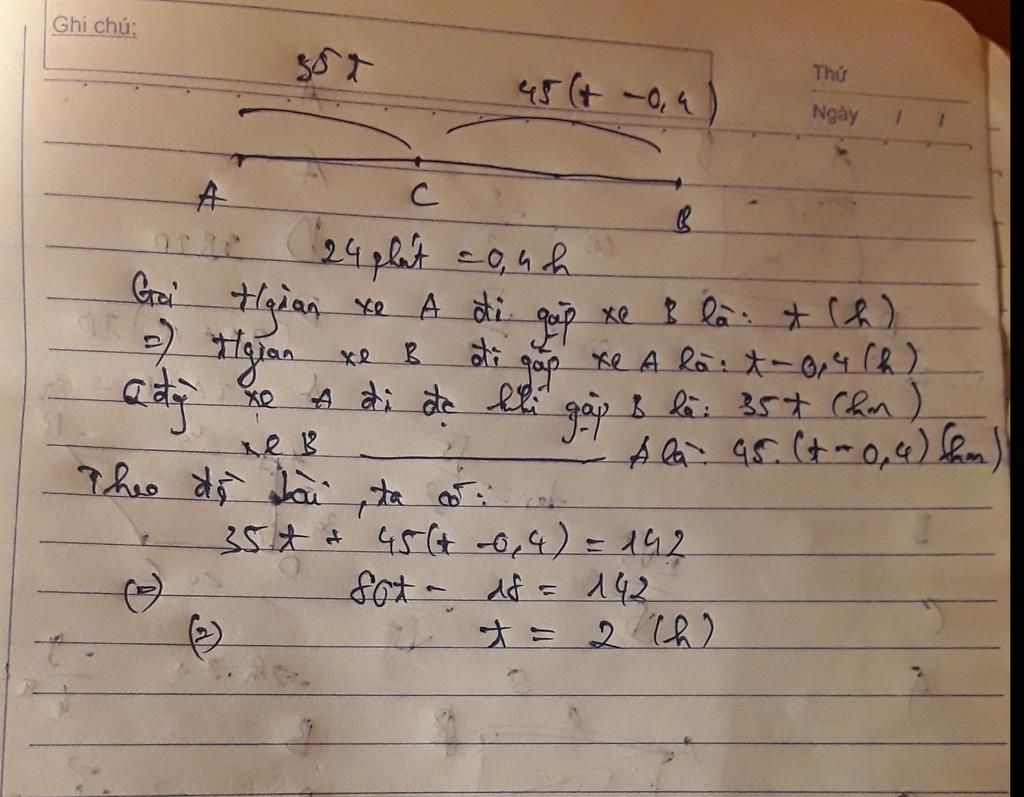 Ghi chú:
Thứ
Ngày / /
35t
45(t - 0,4)
A C B
24 phút = 0,4 h
Gọi t/gian xe A đi gặp xe B là: t (h)
=) t/gian xe B đi gặp xe A là: t - 0,4 (h)
Q đg xe A đi đc khi gặp B là: 35t (km)
xe B ———— A là: 45.(t - 0,4) (km)
Theo đề bài, ta có:
35.t + 45(t - 0,4) = 142
(=) 80t - 18 = 142
(=) t = 2 (h)